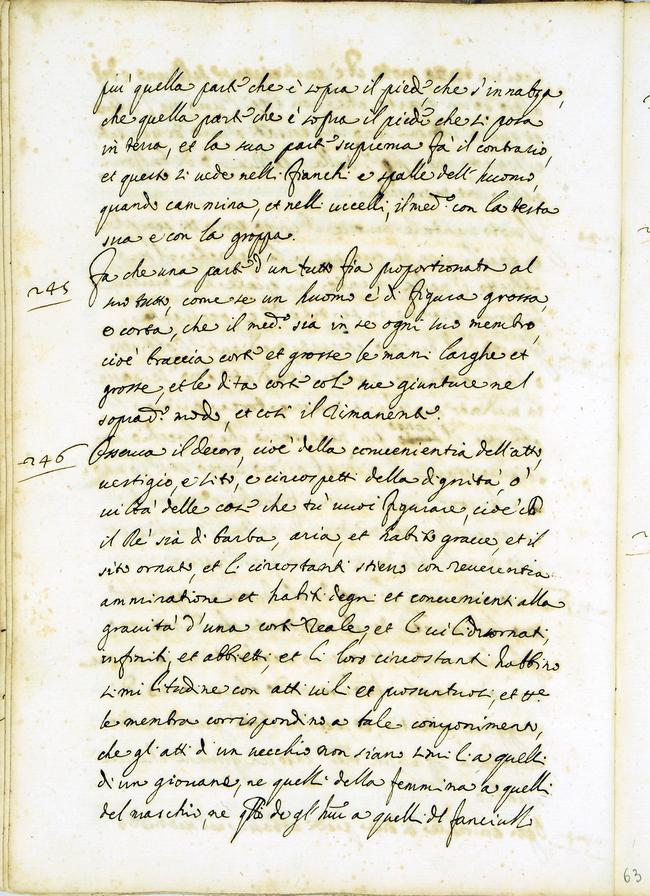 piu' quella parte che è sopra il piede che s'innalza,
che quella parte che è sopra il piede che si posa
in terra, et la sua parte suprema fà il contrario,
et questo si vede nelli fianchi e spalle dell'huomo,
quando cammina, et nelli uccelli, il med.º con la testa
sua e con la groppa.
245 Fa che una parte d'un tutto sia proportionata al
suo tutto, come se un huomo è di figura grossa,
o corta, che il med.º sia in se ogni suo membro,
cioè braccia corte et grosse le mani larghe et
grosse, et le dita corte colle sue giunture nel
soprad.º modo, et così il rimanente.
246 Osserva il decoro, cioè della convenientia dell'atto,
vestigio, e sito, e circospetti della dignità, o'
viltà delle cose che tù vuoi figurare, cioè ch
il Rè sia di barba, aria, et habito grave, et il
sito ornato, et li circostanti stieno con reverentia
ammiratione et habiti degni et convenienti alla
gravità d'una corte reale, et li vili disornati,
infiniti, et abbietti, et li loro circostanti habbino
similitudine con atti vili et prosuntuosi, et tte
le membra corrispondino a tale componimento,
che gl'atti d'un vecchio non siano simili a quelli
di un giovane, ne quelli della femmina a quelli
del maschio, ne qlli de gl'hui a quelli dl fanciulli
63